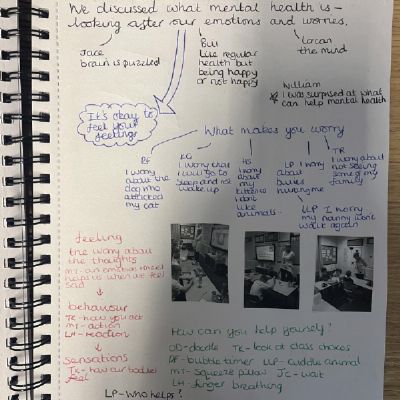 We discussed what mental health is -
looking after our emotions and worries.
Jace
brain is puzzled
Bull
Like regular
health but
being happy
or not happy
Lorcan
the mind
William
I was surprised at what
can help mental health
It's okay to
feel your
feelings
What makes you worry
I worry
about the
dog who
attacked
my cat
KG
I worry that
I will go to
sleep and not
wake up
HS
I worry
about
my
kittens
I don't
like
animals.
LP I worry
about
bullies
hurting me
TR
I worry about
not seeing
some of my
family
LLP I worry
my nanny won't
walk again
feeling
the worry about
the thoughts
MT - an emotion + meet
helps us when we feel
sad
behaviour
TR - how you act
MT - action
LH - reaction
Sensations
TR - how our bodies
feel
How can you help yourself?
OD - doodle TR - look at class choices
bubble timer LLP - cuddle animal
MT - squeeze pillow JC - wait
LH - finger breathing
LP - Who helps?